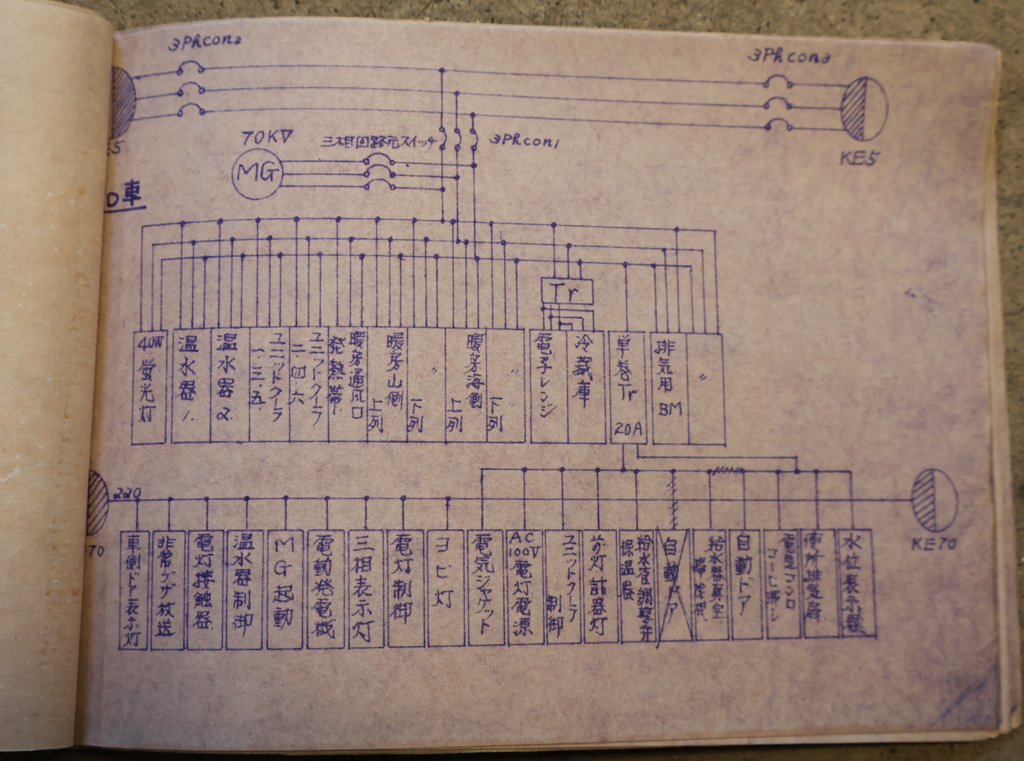 3Phcon2
3Phcon3
70KV
三相回路先スイッチ
3Phcon1
MG
E5
KE5
D車
Tr
40W螢光灯
温水器1.
温水器2.
ユニットクーラ
一.三.五.
ユニットクーラ
二.四.六
発熱帯
暖房通風口
暖房山側
上列
〃
下列
暖房海側
上列
〃
下列
電子レンジ
冷蔵庫
単巻Tr
20A
排気用BM
〃
220
70
KE70
車側ドア表示灯
非常ブザ放送
電灯接触器
温水器制御
MG起動
電動発電機
三相表示灯
電灯制御
ヨビ灯
電気ジャケット
AC
100V
電灯電源
ユニットクーラ
制御
計器灯
給水管調整弁
保温器
自動ドア
給水器
自動ドア
電気コンロ
水位表示器